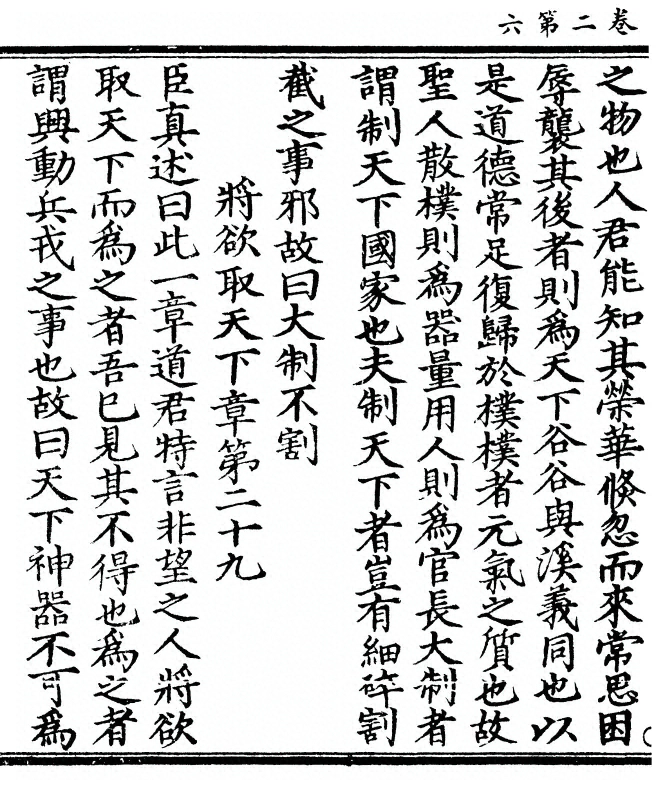 卷二第六
之物也人君能知其榮華倐忽而來常思困
辱襲其後者則為天下谷谷與溪義同也以
是道德常足復歸於樸樸者元氣之質也故
聖人散樸則為器量用人則為官長大制者
謂制天下國家也夫制天下者豈有細碎割
截之事邪故曰大制不割
將欲取天下章第二十九
臣真述曰此一章道君特言非望之人將欲
取天下而為之者吾已見其不得也為之者
謂興動兵戎之事也故曰天下神器不可為